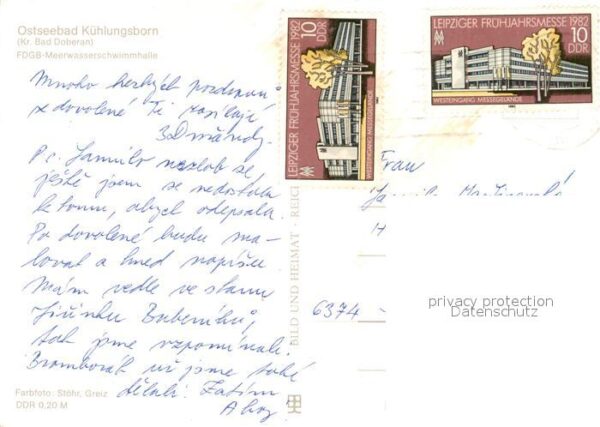 Ostseebad Kühlungsborn
(Kr. Bad Doberan)
FDGB-Meerwasserschwimmhalle
Mnoho hezkých pozdravů
z dovolené Ti posílají
Ps. Jarmilo nezlob se
ještě jsem se nedostala
k tomu, abych odepsala.
Po dovolené budu ma-
lovat a hned napíšu
Mám vedle ve stanu
Jiřinku
tak jsme vzpomínali.
Bramborák už jsme také
dělali. Zatím
Ahoj
Farbfoto: Stöhr, Greiz
DDR 0,20 M
BILD UND HEIMAT · REIC
LEIPZIGER FRÜHJAHRSMESSE 1982
10
DDR
WESTEINGANG MESSEGELÄNDE
LEIPZIGER FRÜHJAHRSMESSE 1982
10
DDR
WESTEINGANG MESSEGELÄNDE
1982
Frau
6374 -
privacy protection
Datenschutz